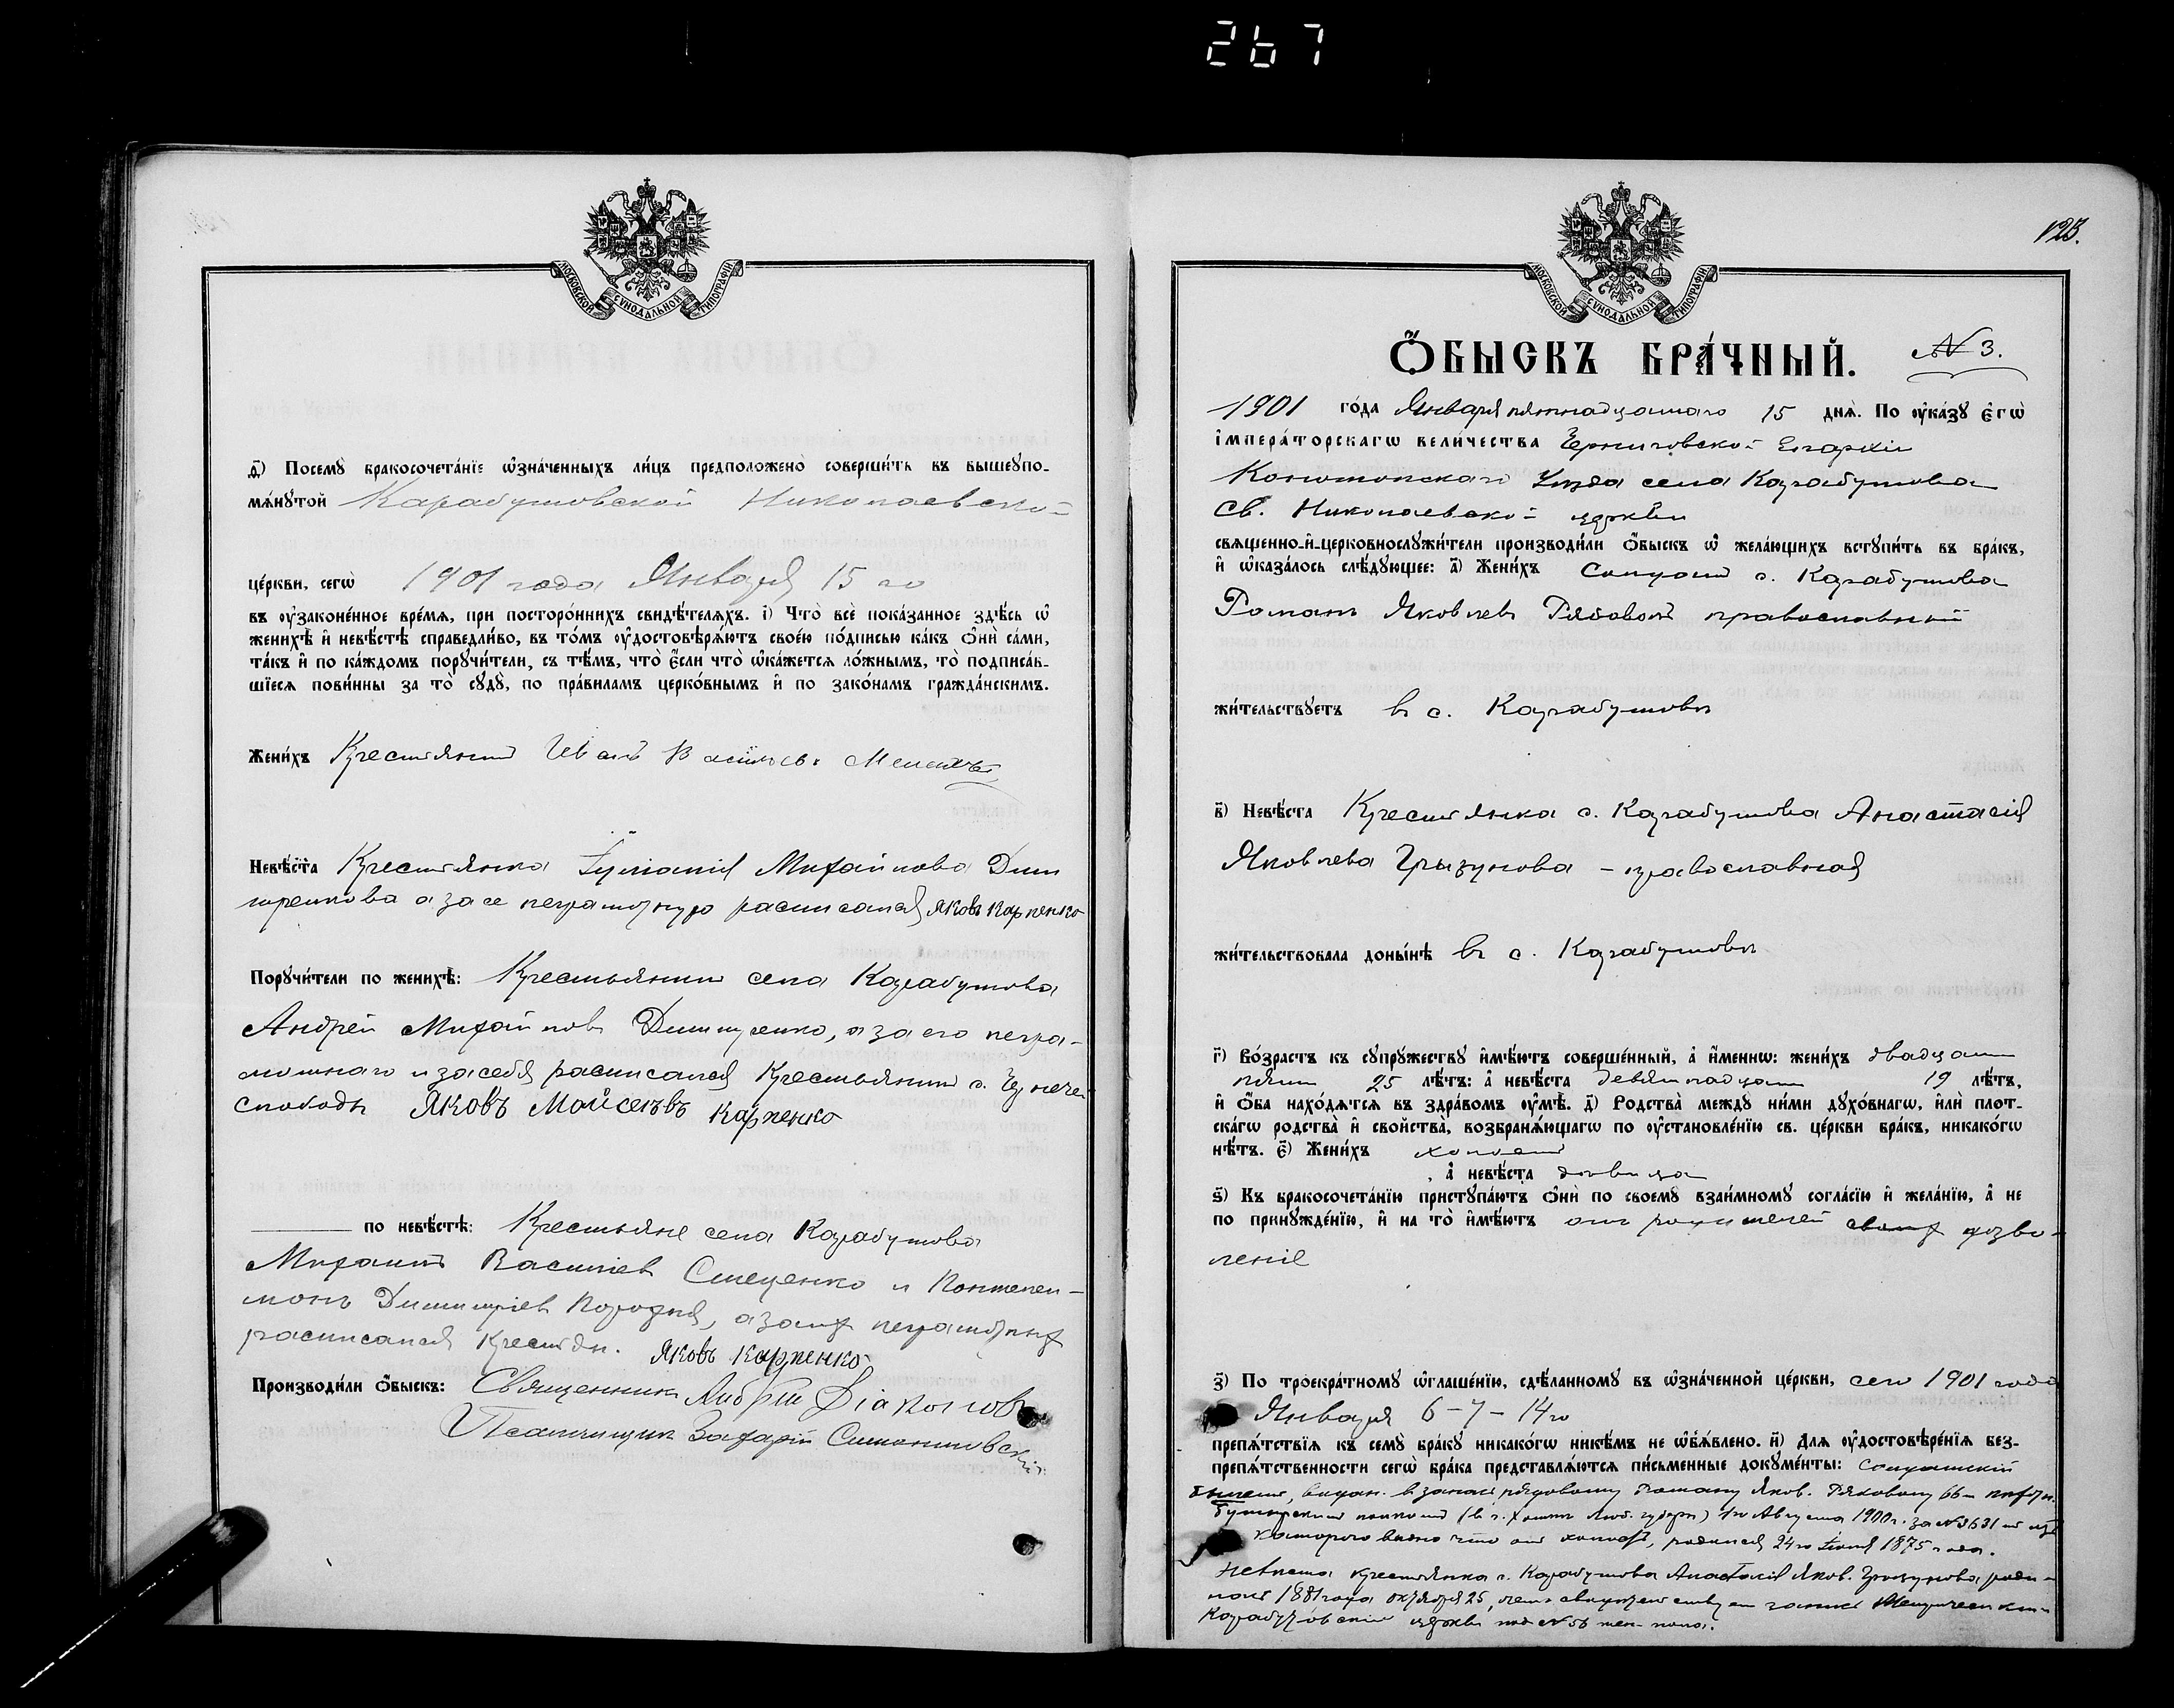 267
МОСКОВСКОЙ СѴНОДАЛЬНОЙ ТИПОГРАФІИ
ѳ҃) Посемꙋ̀ бракосочета́нїе ѡ҆зна́ченныхъ ли́цъ предположено̀ соверши́ть въ вышеꙋпо-
мѧ́нꙋтой Карабутовской Николаевской
це́ркви, сегѡ̀ 1901 года Января 15 го
въ ᲂу҆законе́нное вре́мѧ, при посторо́ннихъ свидѣ́телѧхъ. і҃) Что̀ всѐ пока́занное здѣ́сь ѡ҆
женихѣ̀ и҆ невѣ́стѣ справедли́во, въ то́мъ ᲂу҆достовѣрѧ́ютъ свое́ю по́дписью ка́къ ѻ҆нѝ са́ми,
та́къ и҆ по ка́ждомъ порꙋчи́тели, съ тѣ́мъ, что̀ є҆́сли что̀ ѡ҆ка́жетсѧ ло́жнымъ, то̀ подписа́в-
шїесѧ пови́нны за то̀ сꙋдꙋ̀, по пра́виламъ церко́внымъ и҆ по зако́намъ гражда́нскимъ.
Жени́хъ Крестьянин Иван Васильев
Невѣ́ста Крестьянка Іуліанія Михайлова Дми
тренкова а за ее неграмотную расписался Яковъ Карпенко
Порꙋчи́тели по женихѣ̀: Крестьянин села Карабутова
Андрей Михайлов Дмитренко, а за его негра-
мотнаго и за себя расписался Крестьянин с.
слободы Яковъ Мойсеевъ Карпенко
по невѣ́стѣ: Крестьяне села Карабутова
Михаил Васильев Стеценко и Пантелей-
мон Димитріев, а за их неграмотных
расписался Крестьян. Яковъ Карпенко
Производи́ли ѻ҆́быскъ: Священник Андрей Діаконов
Псаломщик Захарій Симоновскій
МОСКОВСКОЙ СѴНОДАЛЬНОЙ ТИПОГРАФІИ
123.
Ѻ҆́БЫСКЪ БРА́ЧНЫЙ. № 3.
1901 го́да Января пятнадцатаго 15 днѧ̀. По ᲂу҆ка́зꙋ є҆гѡ̀
і҆мпера́торскагѡ вели́чества Черниговской Епархіи
Конотопскаго Уезда села Карабутова
Св. Николаевской церкви
свѧщенно-и҆-церковнослꙋжи́тели производи́ли ѻ҆́быскъ ѡ҆ жела́ющихъ встꙋпи́ть въ бра́къ,
и҆ ѡ҆каза́лось слѣ́дꙋющее: а҃) Жени́хъ с. Карабутова
Роман Яковлев православный
жи́тельствꙋетъ в с. Карабутовѣ
в҃) Невѣ́ста Крестьянка с. Карабутова Анастасія
Яковлева Грызунова - православная
жи́тельствовала доны́нѣ в с. Карабутовѣ
г҃) Во́зрастъ къ сꙋпрꙋ́жествꙋ и҆мѣ́ютъ соверше́нный, а҆ и҆́меннѡ: жени́хъ двадцати
пяти 25 лѣ́тъ: а҆ невѣ́ста девятнадцати 19 лѣ́тъ,
и҆ ѻ҆́ба нахо́дѧтсѧ въ здра́вомъ ᲂу҆мѣ̀. д҃) Родства̀ междꙋ ни́ми дꙋхо́внагѡ, и҆лѝ плот-
ска́гѡ родства̀ и҆ сво́йства, возбранѧ́ющагѡ по ᲂу҆становле́нїю св. це́ркви бра́къ, никако́гѡ
нѣ́тъ. є҃) Жени́хъ холост
, а҆ невѣ́ста девица
ѕ҃) Къ бракосочета́нїю пристꙋпа́ютъ ѻ҆нѝ по своемꙋ̀ взаи́мномꙋ согла́сїю и҆ жела́нїю, а҆ не
по принꙋжде́нїю, и҆ на то̀ и҆мѣ́ютъ от родителей своих дозво-
леніе
з҃) По троекра́тномꙋ ѡ҆глаше́нїю, сдѣ́ланномꙋ въ ѡ҆зна́ченной це́ркви, сего 1901 года
Января 6-7-14 го
препѧ́тствїѧ къ семꙋ̀ бра́кꙋ никако́гѡ никѣ́мъ не ѡ҆б̾ѧ́влено. и҃) Длѧ ᲂу҆достовѣре́нїѧ без-
препѧ́тственности сегѡ̀ бра́ка представлѧ́ютсѧ пи́сьменные докꙋме́нты: солдатскій
билет, выдан. в запас рядовому Роману Яков. 66-м пехотн.
Бутырским полком (в г. Холмѣ Люб. губерн) Августа 1900 г. за № 3631 из
котораго видно что он холост, родился 24 го 1875 года.
Невеста крестьянка с. Карабутова Анастасія Яков. Грызунова роди-
лась 1881 года октября 25, чем свидетельствует запись Метрической книги
Карабутовской церкви под № 56 жен. пола.